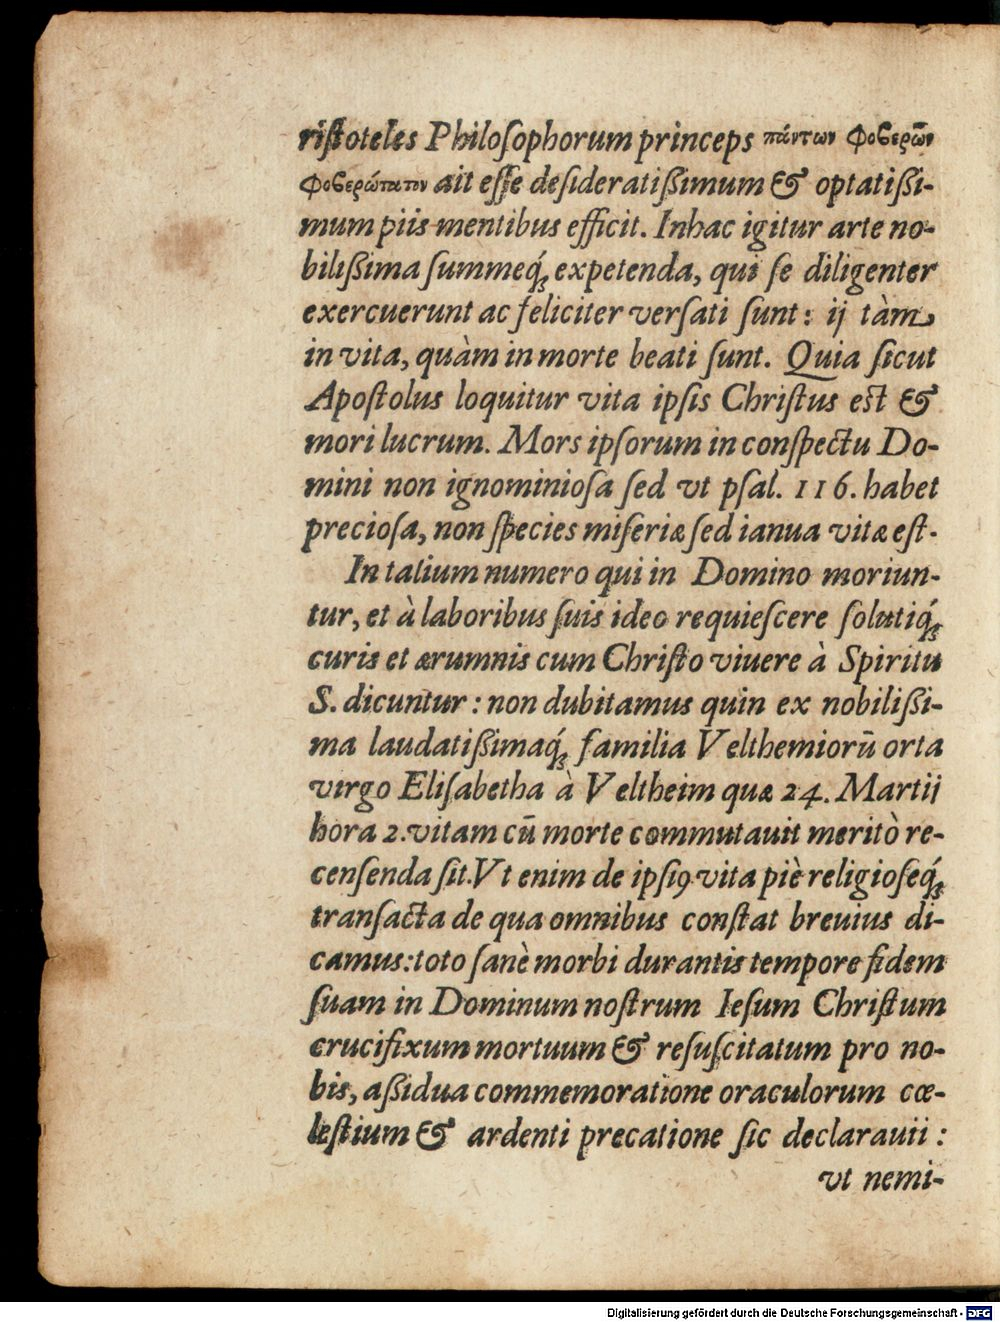 riſtoteles Philoſophorum princeps πάντων φοβερῶν
φοβερώτατον ait eſſe deſideratiſsimum & optatiſsi-
mum piis mentibus efficit. In hac igitur arte no-
biliſsima ſummeq́ꝫ expetenda, qui ſe diligenter
exercuerunt ac feliciter verſati ſunt: ij tàm
in vita, quàm in morte beati ſunt. Quia ſicut
Apoſtolus loquitur vita ipſis Chriſtus eſt &
mori lucrum. Mors ipſorum in conſpectu Do-
mini non ignominioſa ſed vt pſal. 116. habet
precioſa, non ſpecies miſeriæ ſed ianua vitæ eſt.
In talium numero qui in Domino moriun-
tur, et à laboribus ſuis ideo requieſcere ſolutiq́ꝫ
curis et ærumnis cum Chriſto viuere à Spiritu
S. dicuntur: non dubitamus quin ex nobiliſsi-
ma laudatiſsimaq́ꝫ familia Velthemiorū orta
virgo Eliſabetha à Veltheim quæ 24. Martij
hora 2. vitam cū morte commutauit meritò re-
cenſenda ſit. Vt enim de ipſiꝰ vita piè religioſeq́ꝫ
tranſacta de qua omnibus conſtat breuius di-
camus: toto ſanè morbi durantis tempore fidem
ſuam in Dominum noſtrum Ieſum Chriſtum
crucifixum mortuum & reſuſcitatum pro no-
bis, aſsidua commemoratione oraculorum cœ-
leſtium & ardenti precatione ſic declarauit:
vt nemi-
Digitalisierung gefördert durch die Deutsche Forschungsgemeinschaft - DFG